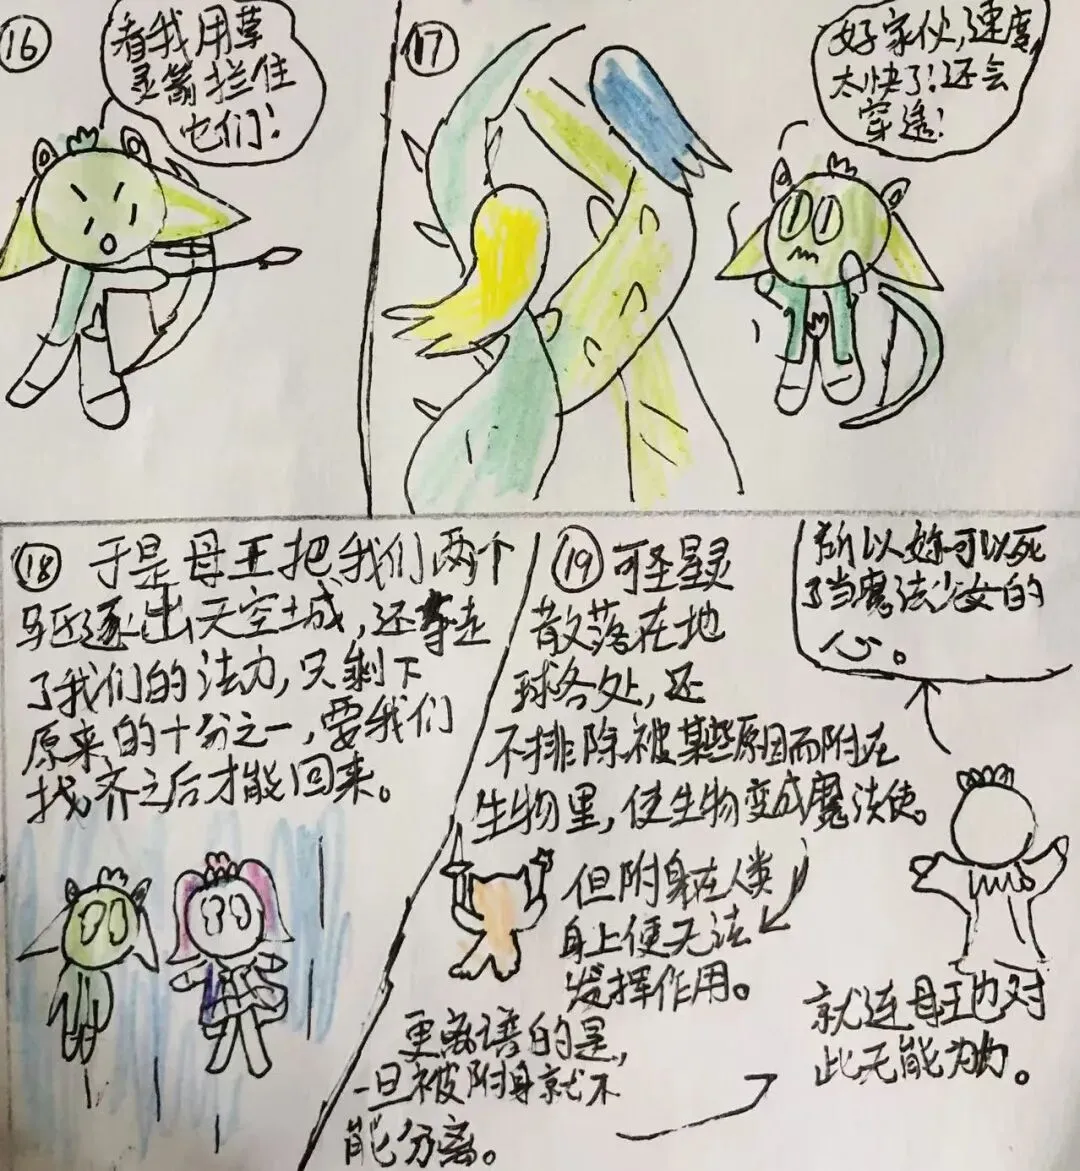 16
看我用草
灵箭拦住
它们!
17
好家伙,速度
太快了!还会
穿透!
18 于是母王把我们两个
驱逐出天空城,还拿走
了我们的法力,只剩下
原来的十分之一,要我们
找齐之后才能回来。
19 可圣星灵
散落在地
球各处,还
不排除被某些原因而附在
生物里,使生物变成魔法使。
但附身在人类
身上便无法
发挥作用。
更离谱的是,
一旦被附身就不
能分离。
就连母王也对
此无能为力。
所以妳可以死
了当魔法少女的
心。